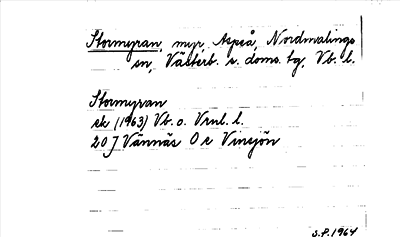 Stormyran, myr, Aspeå, Nordmalings
sn, Västerb. s. doms. tg, Vb. l.
Stormyran
ek (1963) Vb. o. Vrnl. l.
20 J Vännäs O c Vinsjön
S.P. 1964